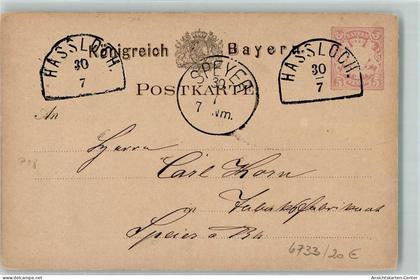 Königreich Bayern.
HASSLOCH.
30
7
SPEYER
30
7
7 Nm.
HASSLOCH.
30
7
3
3
POSTKARTE.
An
Herrn
Carl Horn
in Tabakfabrikant
Speier a. Rh.
6733/20 €
Ansichtskarten-Center